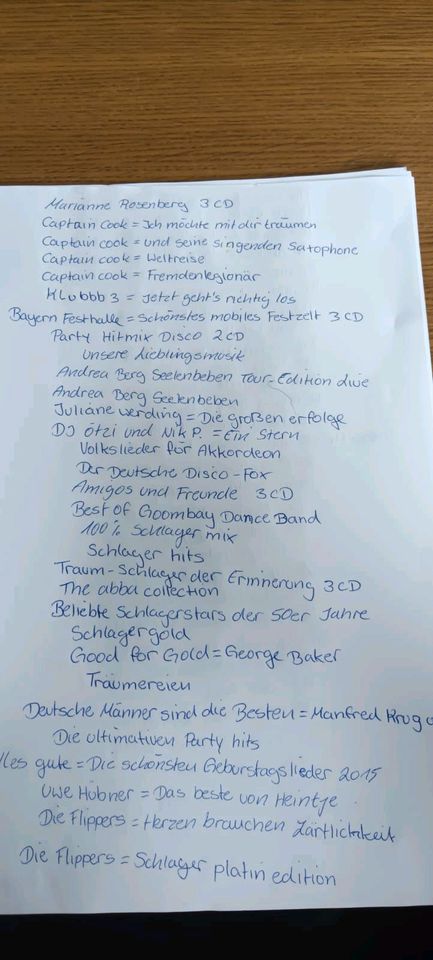 Marianne Rosenberg 3 CD
Captain Cook = Ich möchte mit dir träumen
Captain cook = und seine singenden Satophone
Captain cook = Weltreise
Captain cook = Fremdenlegionär
Klubbb 3 = Jetzt geht's richtig los
Bayern Festhalle = Schönstes mobiles Festzelt 3 CD
Party Hitmix Disco 2 CD
Unsere Lieblingsmusik
Andrea Berg Seelenbeben Tour-Edition live
Andrea Berg Seelenbeben
Juliane Werding = Die großen erfolge
DJ Ötzi und Nik P. = Ein Stern
Volkslieder für Akkordeon
Der Deutsche Disco-Fox
Amigos und Freunde 3 CD
Best of Goombay Dance Band
100% Schlager mix
Schlager hits
Traum-Schlager der Erinnerung 3 CD
The abba collection
Beliebte Schlagerstars der 50er Jahre
Schlagergold
Good for Gold = George Baker
Träumereien
Deutsche Männer sind die Besten = Manfred Krug
Die ultimativen Party hits
lles gute = Die schönsten Geburstagslieder 2015
Uwe Hübner = Das beste von Heintje
Die Flippers = Herzen brauchen Zärtlichkeit
Die Flippers = Schlager platin edition